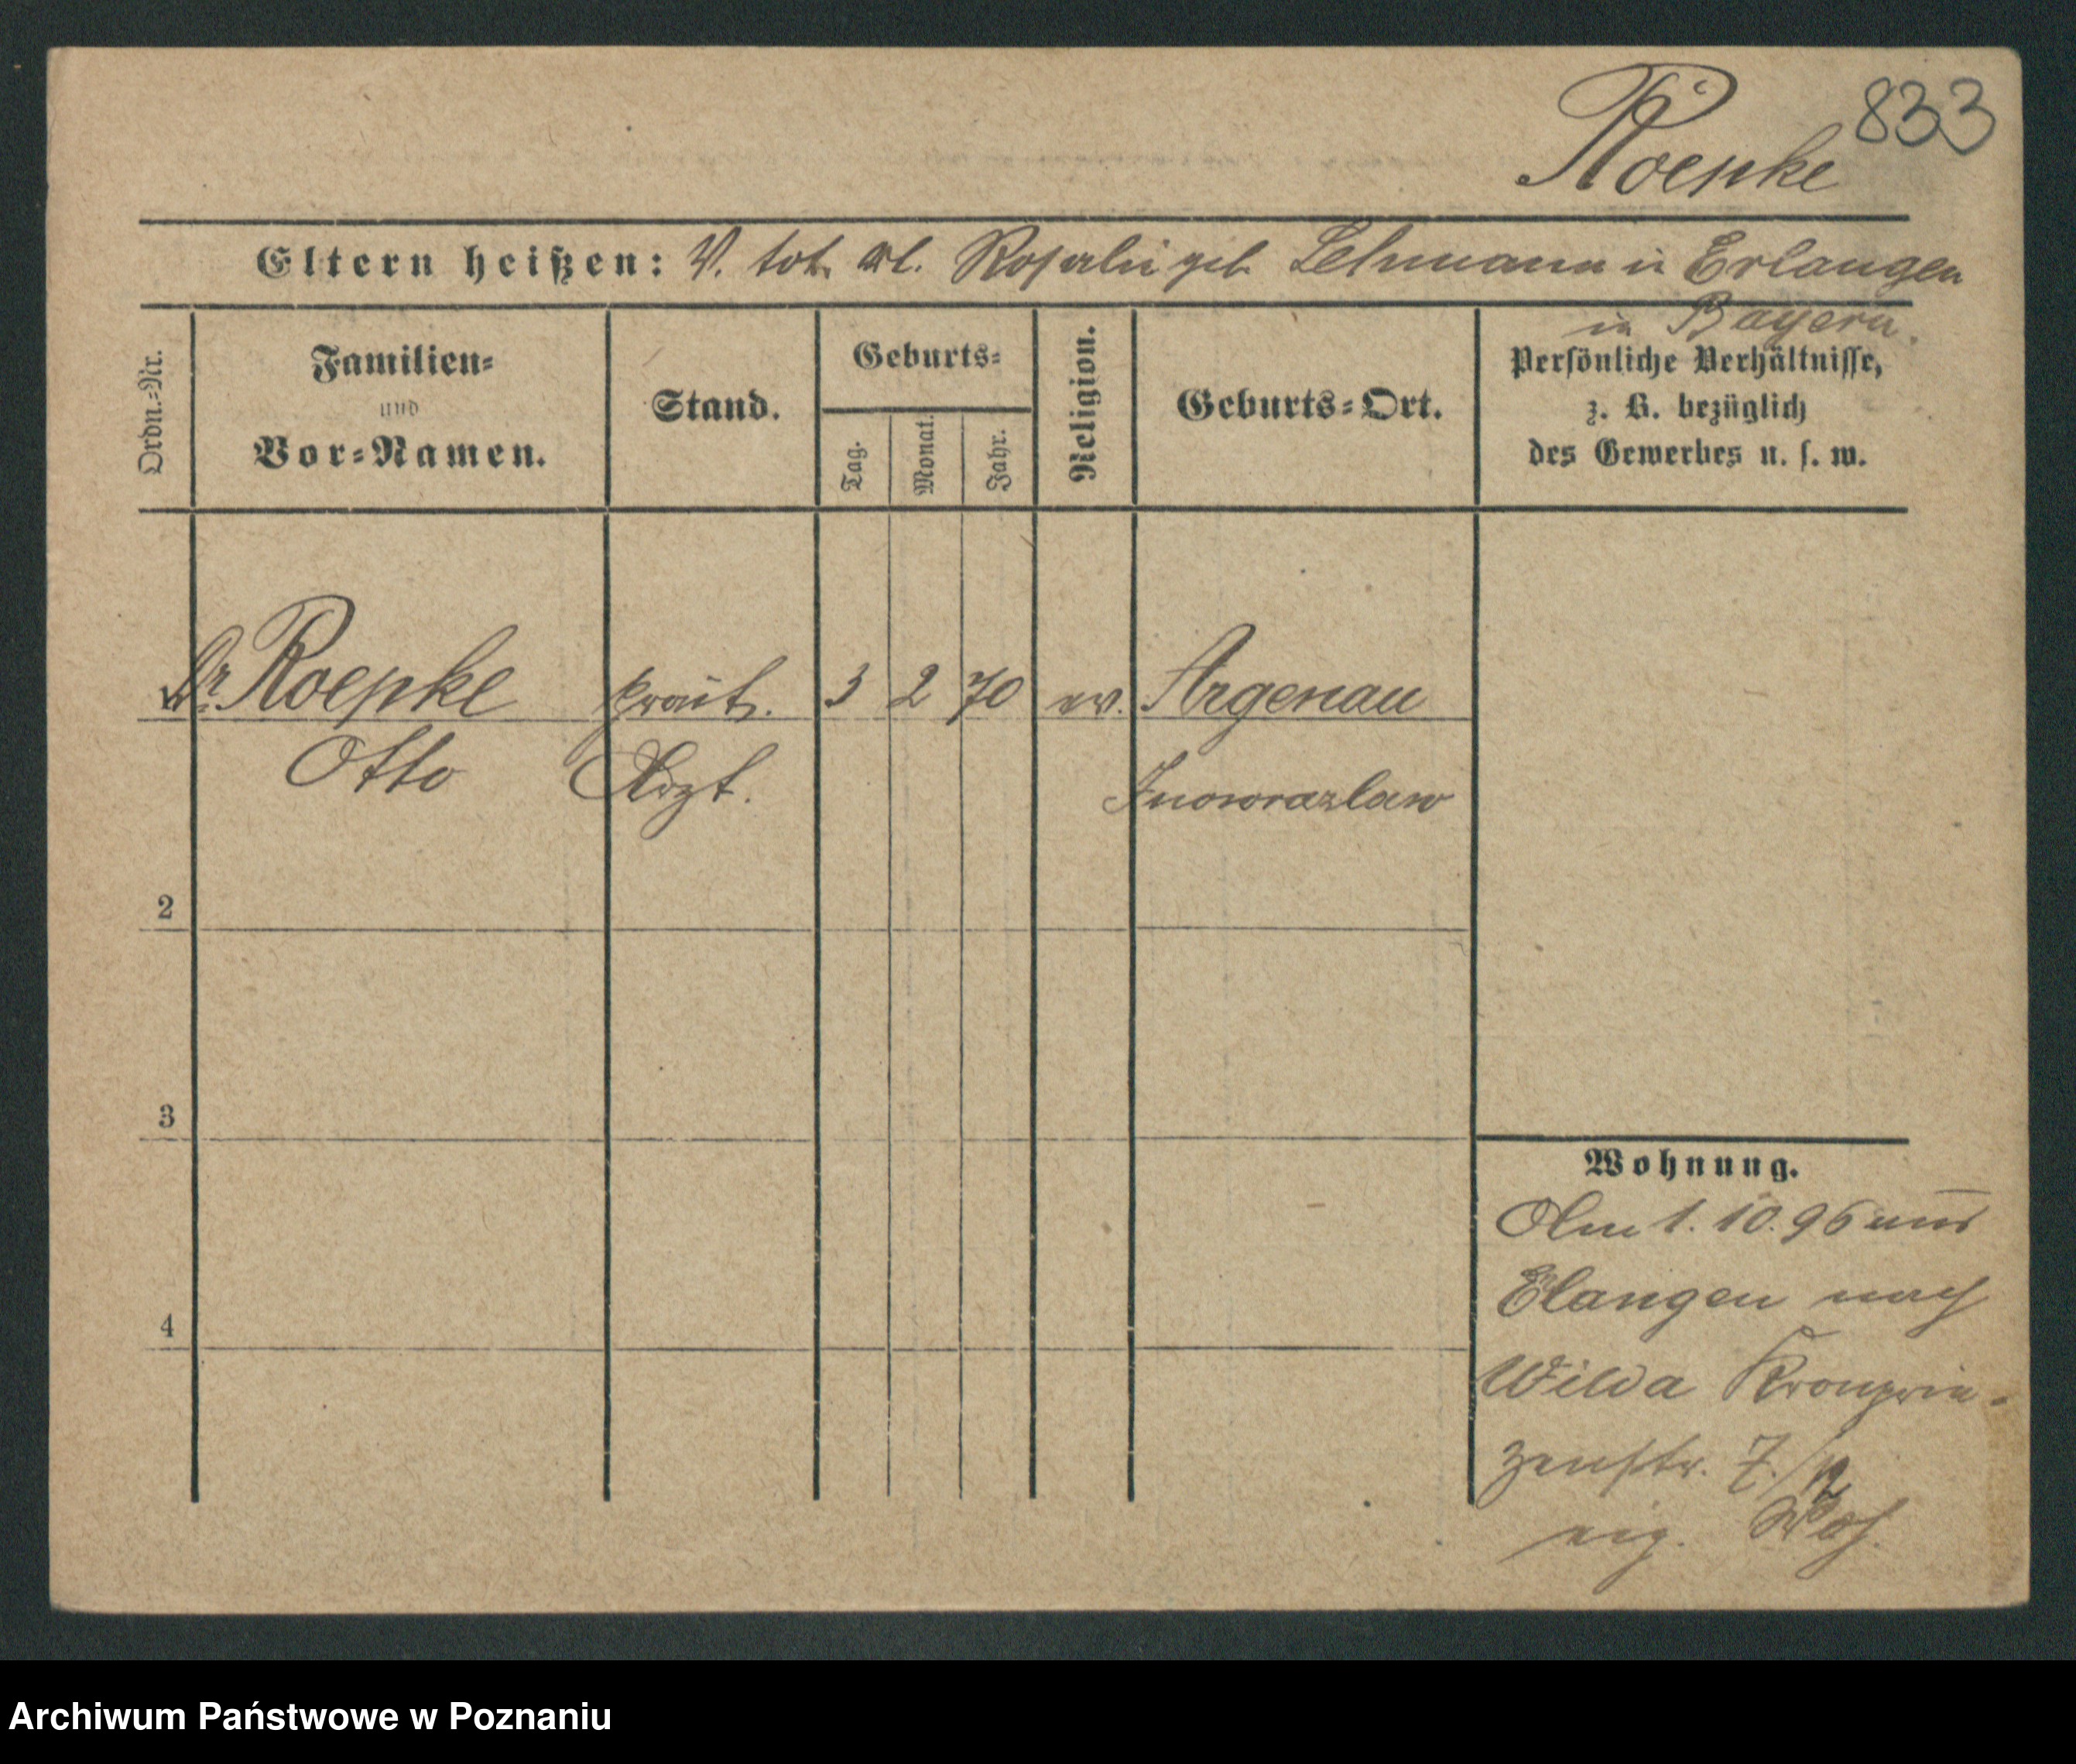 833
Roepke
Eltern heißen: V. tot. Rosalie geb. Lehmann in Erlangen
in Bayern.
Ordn.-Nr.
Familien-
und
Vor-Namen.
Stand.
Geburts-
Tag.
Monat.
Jahr.
Religion.
Geburts-Ort.
Persönliche Verhältnisse,
z. B. bezüglich
des Gewerbes u. s. w.
Dr. Roepke prakt. 3 2 70 ev. Argenau
Otto Arzt. Inowrazlaw
2
3
4
Wohnung.
Am 1. 10. 96 aus
Elangen nach
Wilda Kronprin-
zenstr. 7./
eig.
Archiwum Państwowe w Poznaniu